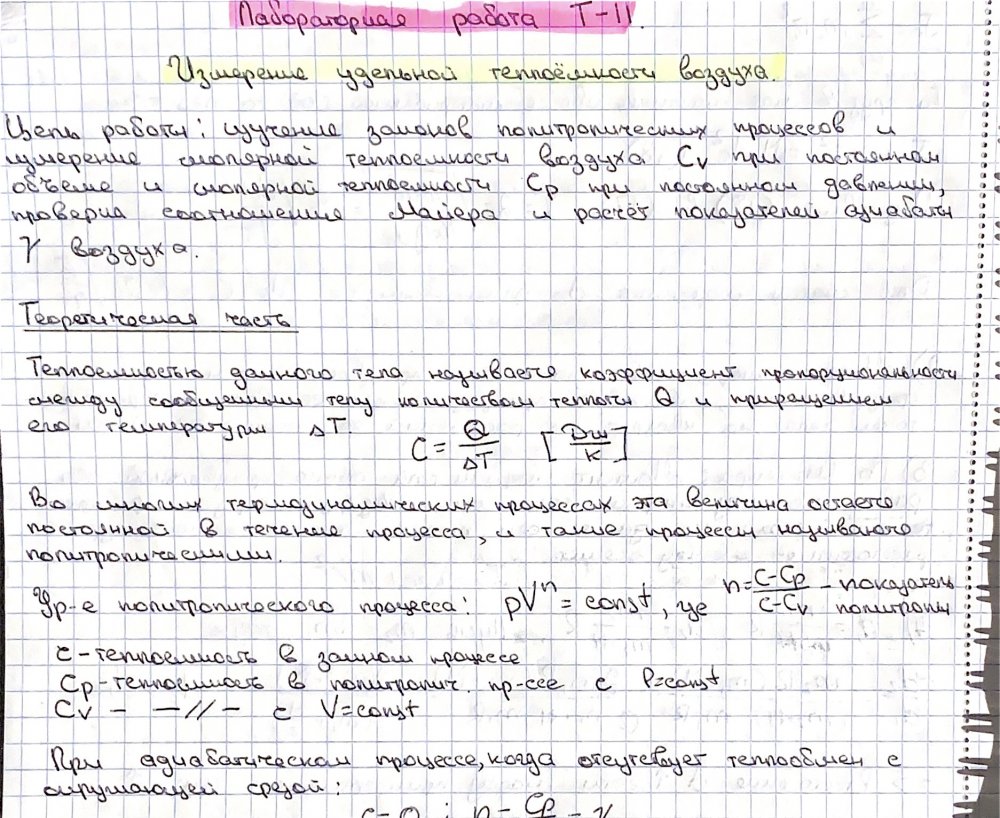 Лабораторная работа Т-11.
Измерение удельной теплоёмкости воздуха.
Цель работы: изучение законов политропических процессов и
измерение молярной теплоемкости воздуха Cv при постоянном
объеме и молярной теплоемкости Cp при постоянном давлении,
проверка соотношения Майера и расчёт показателей адиабаты
γ воздуха.
Теоретическая часть
Теплоемкостью данного тела называется коэффициент пропорциональности
между сообщенными телу количеством теплоты Q и приращением
его температуры ΔT.
C = Q/ΔT [Дж/К]
Во многих термодинамических процессах эта величина остается
постоянной в течение процесса, и такие процессы называются
политропическими.
Ур-е политропического процесса: pVⁿ = const, где n = (C-Cp)/(C-Cv) - показатель политропы
c - теплоемкость в данном процессе
Cp - теплоемкость в политропич. пр-ссе с P=const
Cv - —//— с V=const
При адиабатическом процессе, когда отсутствует теплообмен с
окружающей средой:
c=0; n = Cp = γ